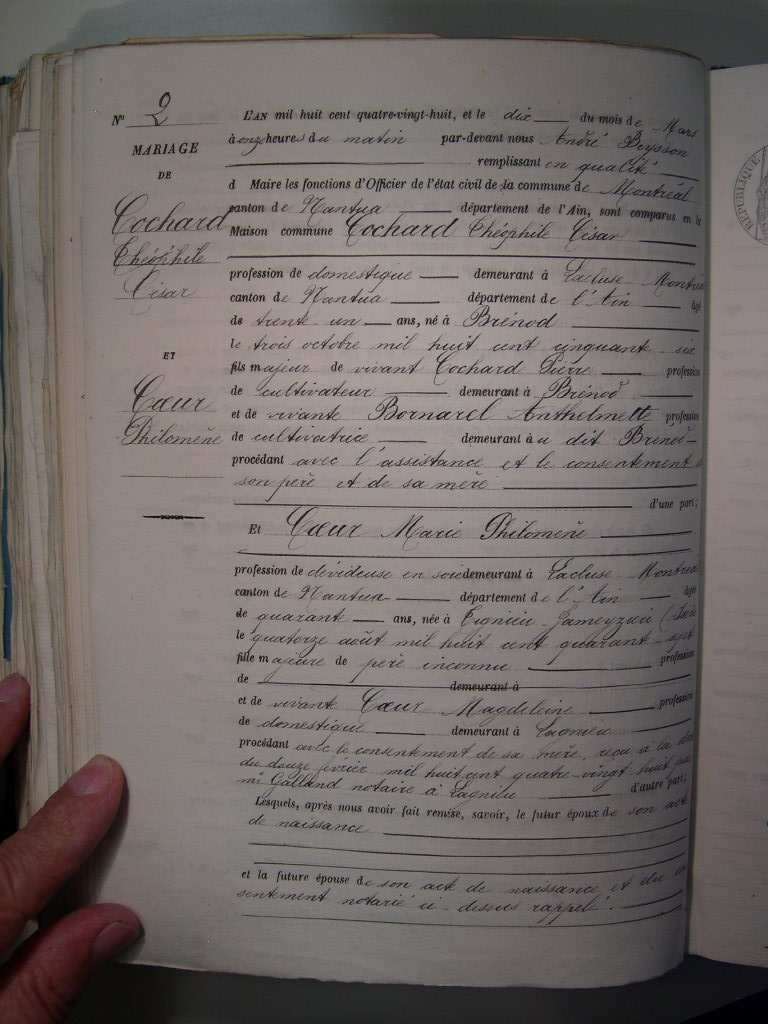 N° 2
MARIAGE
DE
Cochard
Théophile
César
ET
Cœur
Philomène
L'AN mil huit cent quatre-vingt-huit, et le dix du mois de Mars
à onze heures du matin par-devant nous André Beysson
remplissant en qualité
d Maire les fonctions d'Officier de l'état civil de la commune de Montréal
canton de Nantua département de l'Ain, sont comparus en la
Maison commune Cochard Théophile César
profession de domestique demeurant à Lacluse Montréa
canton de Nantua département de l'Ain agé
de trente un ans, né à Brénod
le trois octobre mil huit cent cinquante six
fils majeur de vivant Cochard Pierre profession
de cultivateur demeurant à Brénod
et de vivante Bornarel Anthelmette profession
de cultivatrice demeurant à u dit Brénod
procédant avec l'assistance et le consentement d
son père et de sa mère
d'une part;
Et Cœur Marie Philomène
profession de dévideuse en soie demeurant à Lacluse Montréa
canton de Nantua département de l'Ain agé
de quarant ans, née à Tignieu Jameyzieu (Isère
le quatorze août mil huit cent quarant sept
fille majeure de père inconnu profession
de demeurant à
et de vivante Cœur Magdeleine profession
de domestique demeurant à Lagnieu
procédant avec le consentement de sa mère, reçu à la date
du douze février mil huit cent quatre-vingt huit
Mr Galland notaire à Lagnieu d'autre part;
Lesquels, après nous avoir fait remise, savoir, le futur époux de son acte
de naissance
et la future épouse de son act de naissance et du con
sentement notarié ci-dessus rappelé.
RÉPUBLIQUE